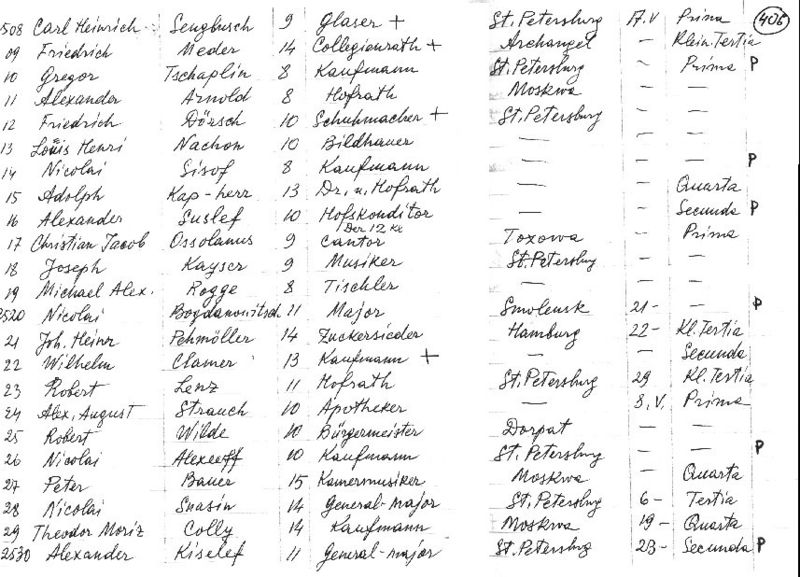 508 Carl Heinrich Sengbusch 9 Glaser + St. Petersburg 17. V Prima 406
09 Friedrich Meder 14 Collegienrath + Archangel — Klein. Tertia
10 Gregor Tschaplin 8 Kaufmann St. Petersburg — Prima P
11 Alexander Arnold 8 Hofrath Moskwa — —
12 Friedrich Dörsch 10 Schuhmacher + St. Petersburg — —
13 Louis Henri Nachon 10 Bildhauer — — —
14 Nicolai Sisof 8 Kaufmann — — — P
15 Adolph Kap-herr 13 Dr. u. Hofrath — — Quarta
16 Alexander Suslef 10 Hofskonditor — — Secunda P
Der 12 Ke
17 Christian Jacob Ossolanus 9 Cantor Toxowa — Prima
18 Joseph Kayser 9 Musiker St. Petersburg — —
19 Michael Alex. Rogge 8 Tischler — — —
2520 Nicolai Bogdanowitsch 11 Major Smolensk 21 – — P
21 Joh. Heinr Pehmöller 14 Zuckersieder Hamburg 22 – Kl. Tertia
22 Wilhelm Clamer 13 Kaufmann + — — Secunda
23 Robert Lenz 11 Hofrath St. Petersburg 29 Kl. Tertia
24 Alex. August Strauch 10 Apotheker — 8. V. Prima
25 Robert Wilde 10 Bürgermeister Dorpat — —
26 Nicolai Alexeeff 10 Kaufmann St. Petersburg — — P
27 Peter Bauer 15 Kamermusiker Moskwa — Quarta
28 Nicolai 14 General-major St. Petersburg 6 – Tertia
29 Theodor Moriz Colly 14 Kaufmann Moskwa 19 – Quarta
2530 Alexander Kiselef 11 General-major St. Petersburg 23 – Secunda P